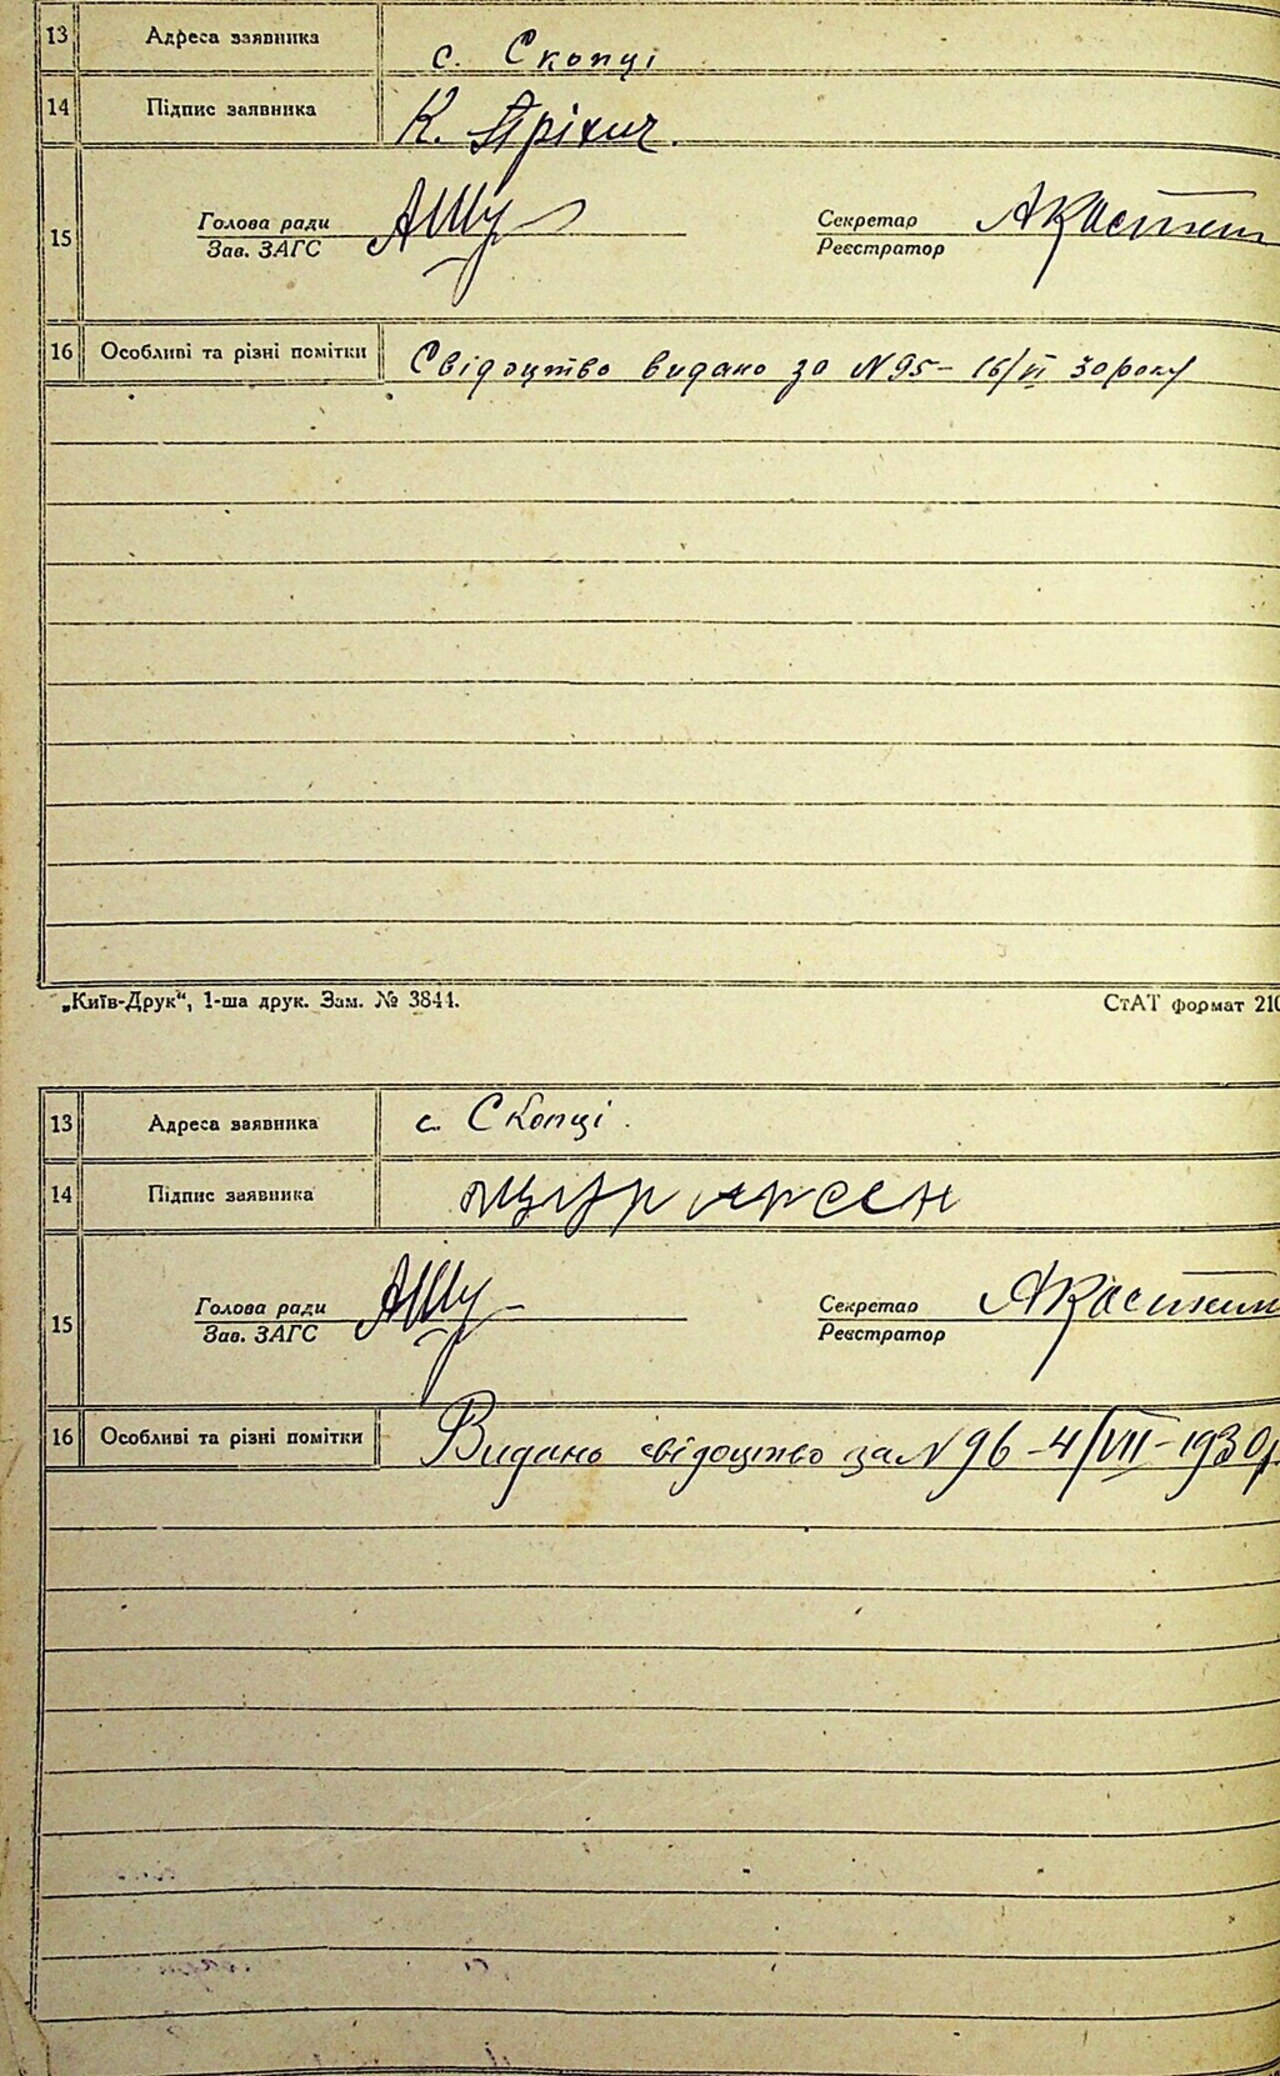 13 Адреса заявника с. Скопці
14 Підпис заявника К.
15 Голова ради Секретар
Зав. ЗАГС Реєстратор
16 Особливі та різні помітки Свідоцтво видано за N 95 - 16/VI 30 року
„Київ-Друк“, 1-ша друк. Зам. № 3844. СтАТ формат 210
13 Адреса заявника с. Скопці.
14 Підпис заявника Щур Арсен
15 Голова ради Секретар
Зав. ЗАГС Реєстратор
16 Особливі та різні помітки Видано свідоцтво за N 96 - 4/VII - 1930р.